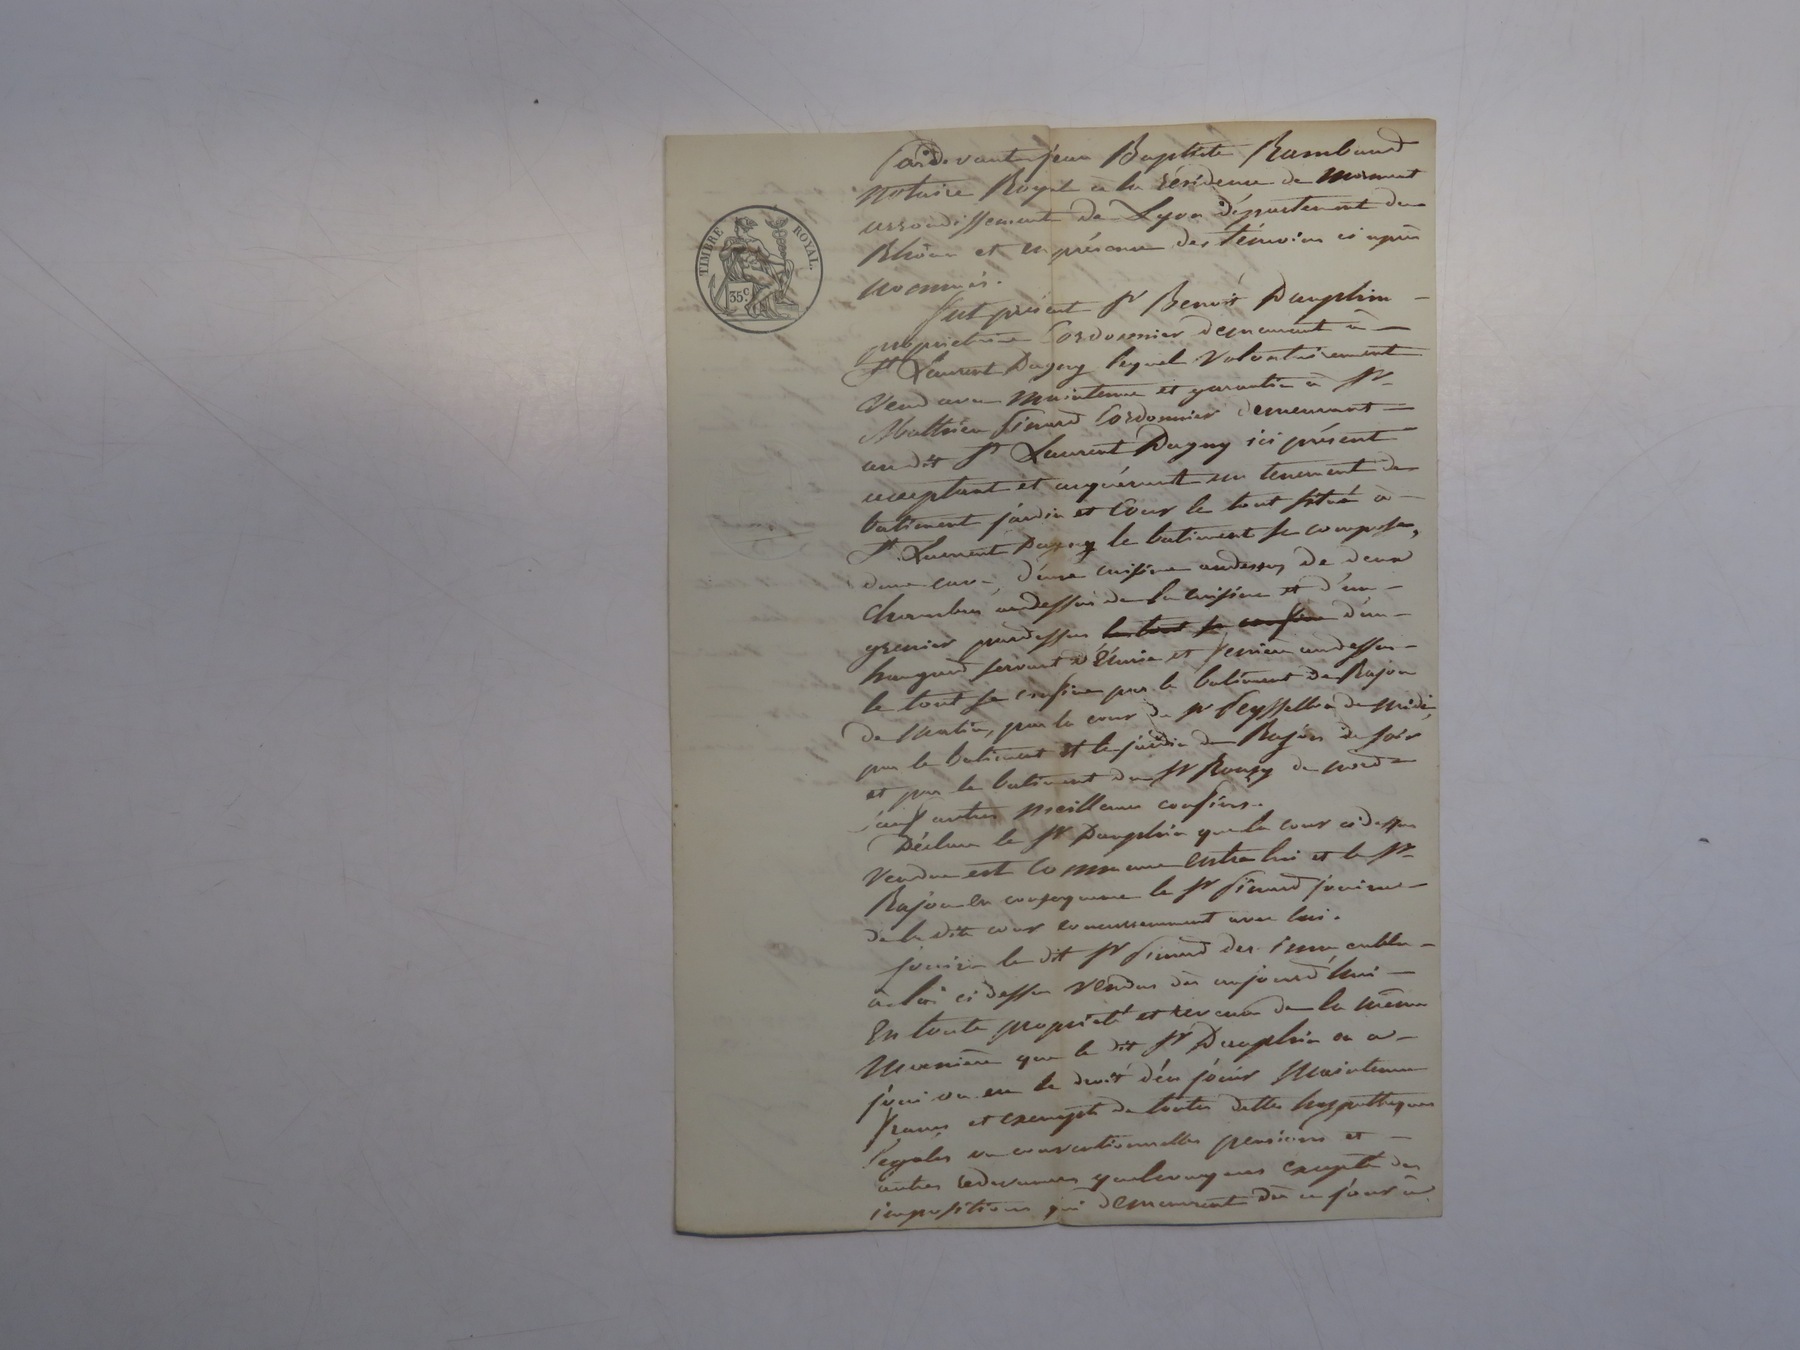 TIMBRE ROYAL.
35c.
Pardevant Jean Baptiste Rambaud
Notaire Royal à la résidence de Mornant
arrondissement de Lyon département du
Rhône et en présence des témoins ci après
nommés.
Fut présent Sr Benoit Dauphin
propriétaire Cordonnier demeurant à
St Laurent Dagny lequel volontairement
vend avec maintenue et garantie à Sr
Mathieu Simard Cordonnier demeurant
au dit St Laurent Dagny ici présent
acceptant et acquérant un tenement de
batiment jardin et cour le tout situé à
St Laurent Dagny le batiment se compose,
dune cave, d'une cuisine audessus de deux
chambres audessus de la cuisine et d'un
grenier pardessus le tout se confine d'un
hangard servant d'écurie et fenière audessus
le tout se confine par le batiment de Rajon
de matin, par la cour de Sr Peyssellon de midi,
par le batiment et le jardin de Rajon de soir
et par le batiment du Sr de nord
sauf autres meilleurs confins.
Déclare le Sr Dauphin que la cour ci dessus
vendue est commune entre lui et le Sr
Rajon en conséquence le Sr Simard jouira
de la dite cour concurremment avec lui.
Jouira le dit Sr Simard des immeubles
à lui ci dessus vendus dès aujourd'hui
En toute propriété et revenu de la même
manière que le dit Sr Dauphin en a
joui ou eu le droit d'en jouir maintenus
francs et exempts de toutes dettes hypothèques
légales ou conventionnelles pensions et
autres redevances quelconques excepté des
impositions qui demeurent dès ce jour à